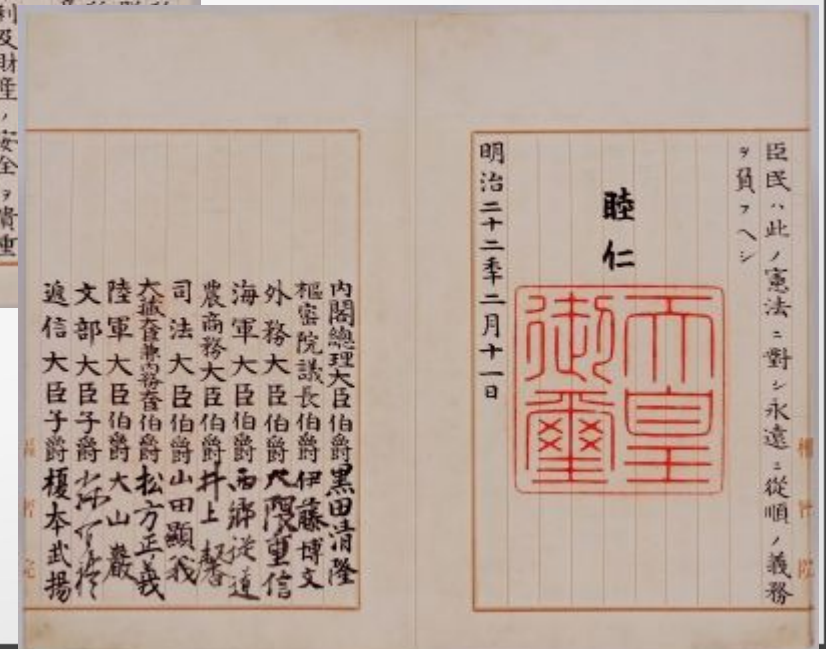 臣民ハ此ノ憲法ニ對シ永遠ニ從順ノ義務
ヲ負フヘシ
睦仁
天皇
御璽
明治二十二年二月十一日
內閣總理大臣伯爵黒田清隆
樞密院議長伯爵伊藤博文
外務大臣伯爵大隈重信
海軍大臣伯爵西郷從道
農商務大臣伯爵井上馨
司法大臣伯爵山田顯義
大藏大臣兼內務大臣伯爵松方正義
陸軍大臣伯爵大山巖
文部大臣子爵
遞信大臣子爵榎本武揚
利及財産ノ安全ヲ貴重